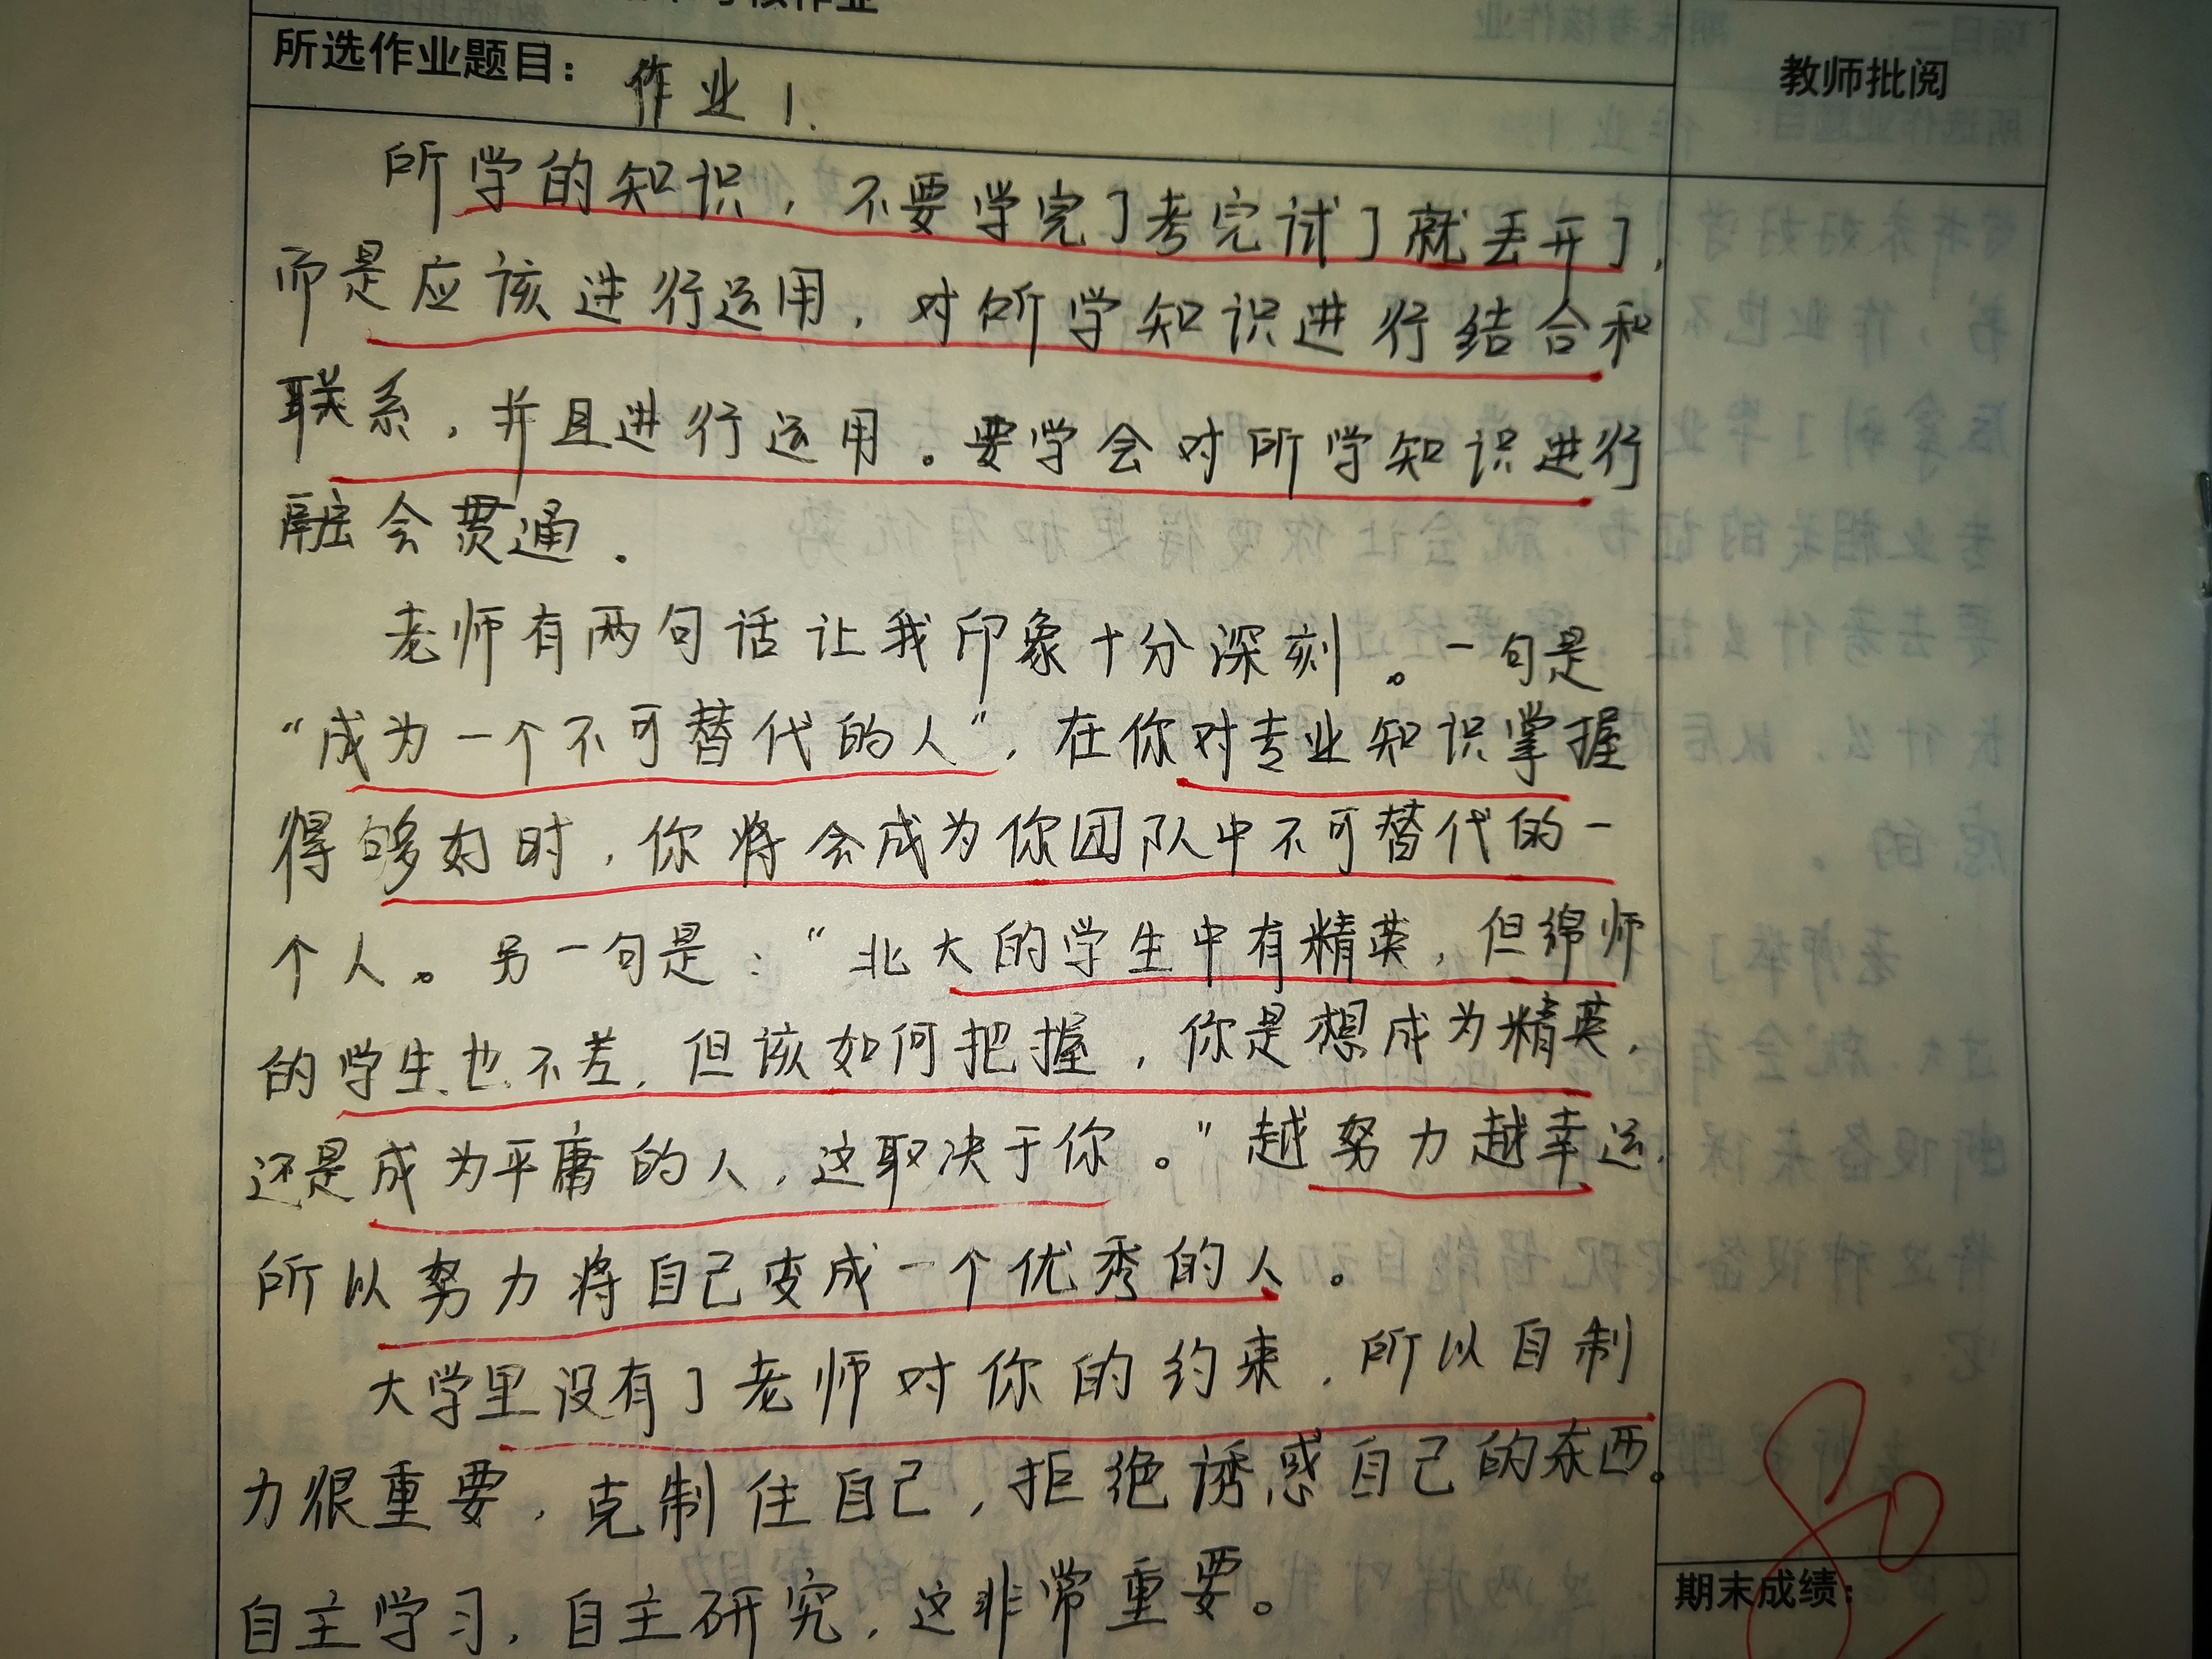 考核作业
所选作业题目： 作业1.
教师批阅
所学的知识，不要学完了考完试了就丢开了，
而是应该进行运用，对所学知识进行结合和
联系，并且进行运用。要学会对所学知识进行
融会贯通．
老师有两句话让我印象十分深刻。一句是
“成为一个不可替代的人”，在你对专业知识掌握
得够好时，你将会成为你团队中不可替代的一
个人。另一句是：“北大的学生中有精英，但绵师
的学生也不差，但该如何把握，你是想成为精英，
还是成为平庸的人，这取决于你。”越努力越幸运，
所以努力将自己变成一个优秀的人。
大学里没有了老师对你的约束，所以自制
力很重要，克制住自己，拒绝诱惑自己的东西。
自主学习，自主研究，这非常重要。
80
期末成绩：